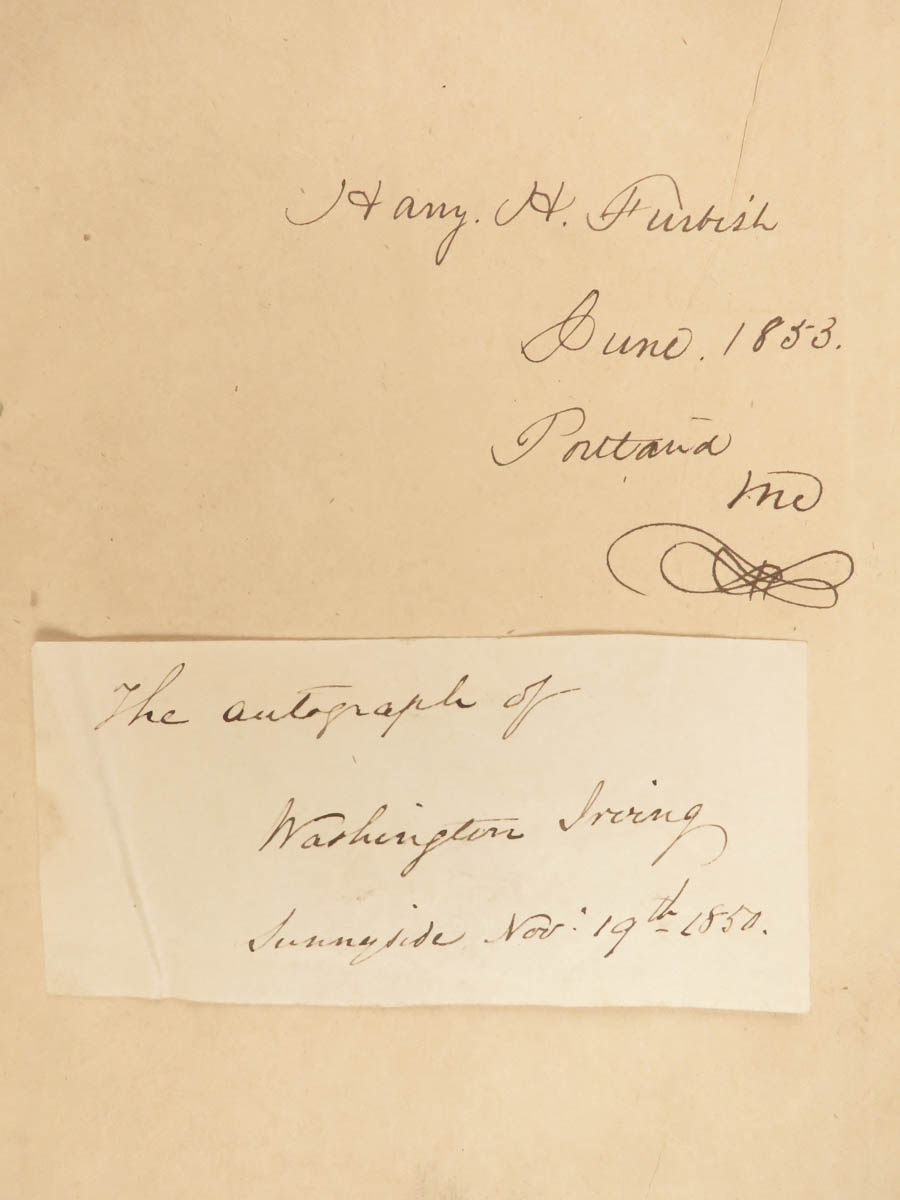 Harry. H. Furbish
June. 1853.
Portland
Me
The autograph of
Washington Irving
Sunnyside Nov: 19th 1850.